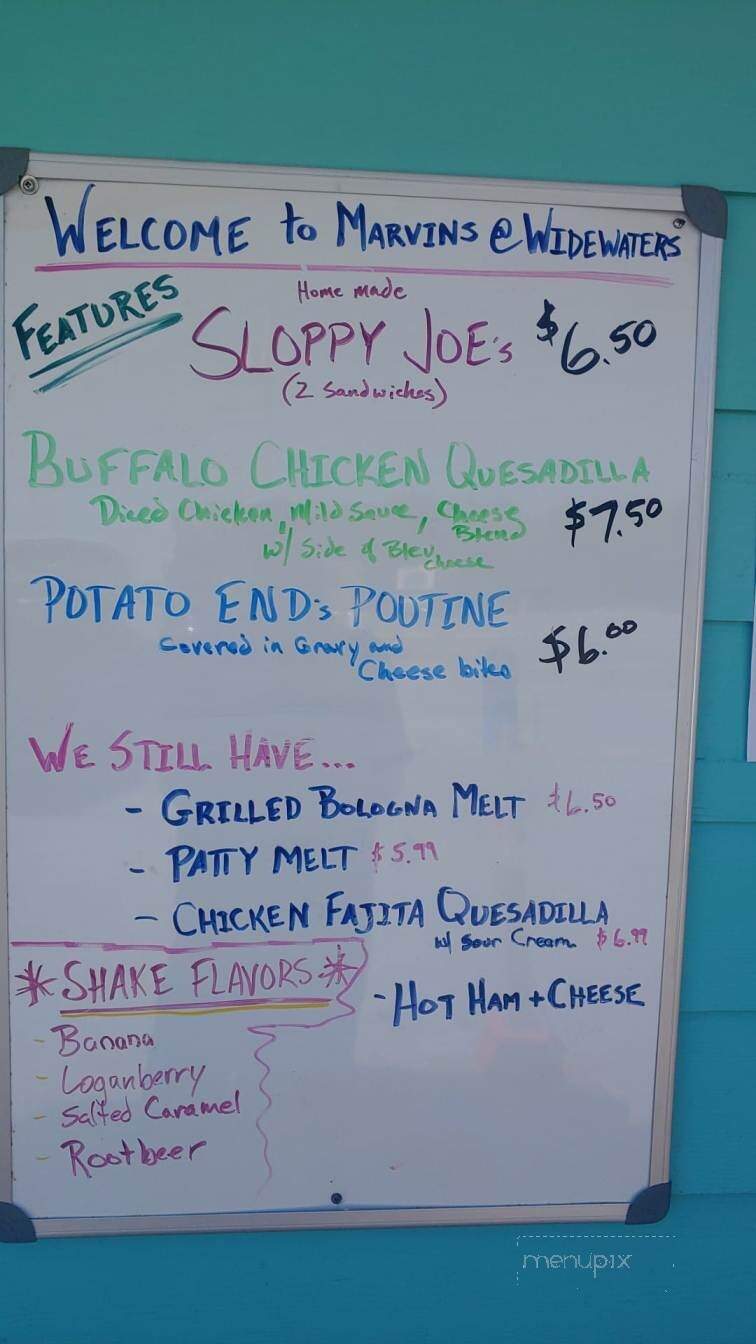 WELCOME to MARVINS @ WIDEWATERS
FEATURES
Home made
SLOPPY JOE's $6.50
(2 Sandwiches)
BUFFALO CHICKEN QUESADILLA
Diced Chicken, Mild Sauce, Cheese
Blend
$7.50
w/ Side of Bleu
cheese
POTATO END's POUTINE
Covered in Gravy and
Cheese bites
$6.00
WE STILL HAVE...
- GRILLED BOLOGNA MELT $6.50
- PATTY MELT $5.99
- CHICKEN FAJITA QUESADILLA
w/ Sour Cream $6.99
* SHAKE FLAVORS *
- HOT HAM + CHEESE
- Banana
- Loganberry
- Salted Caramel
- Rootbeer
menupix